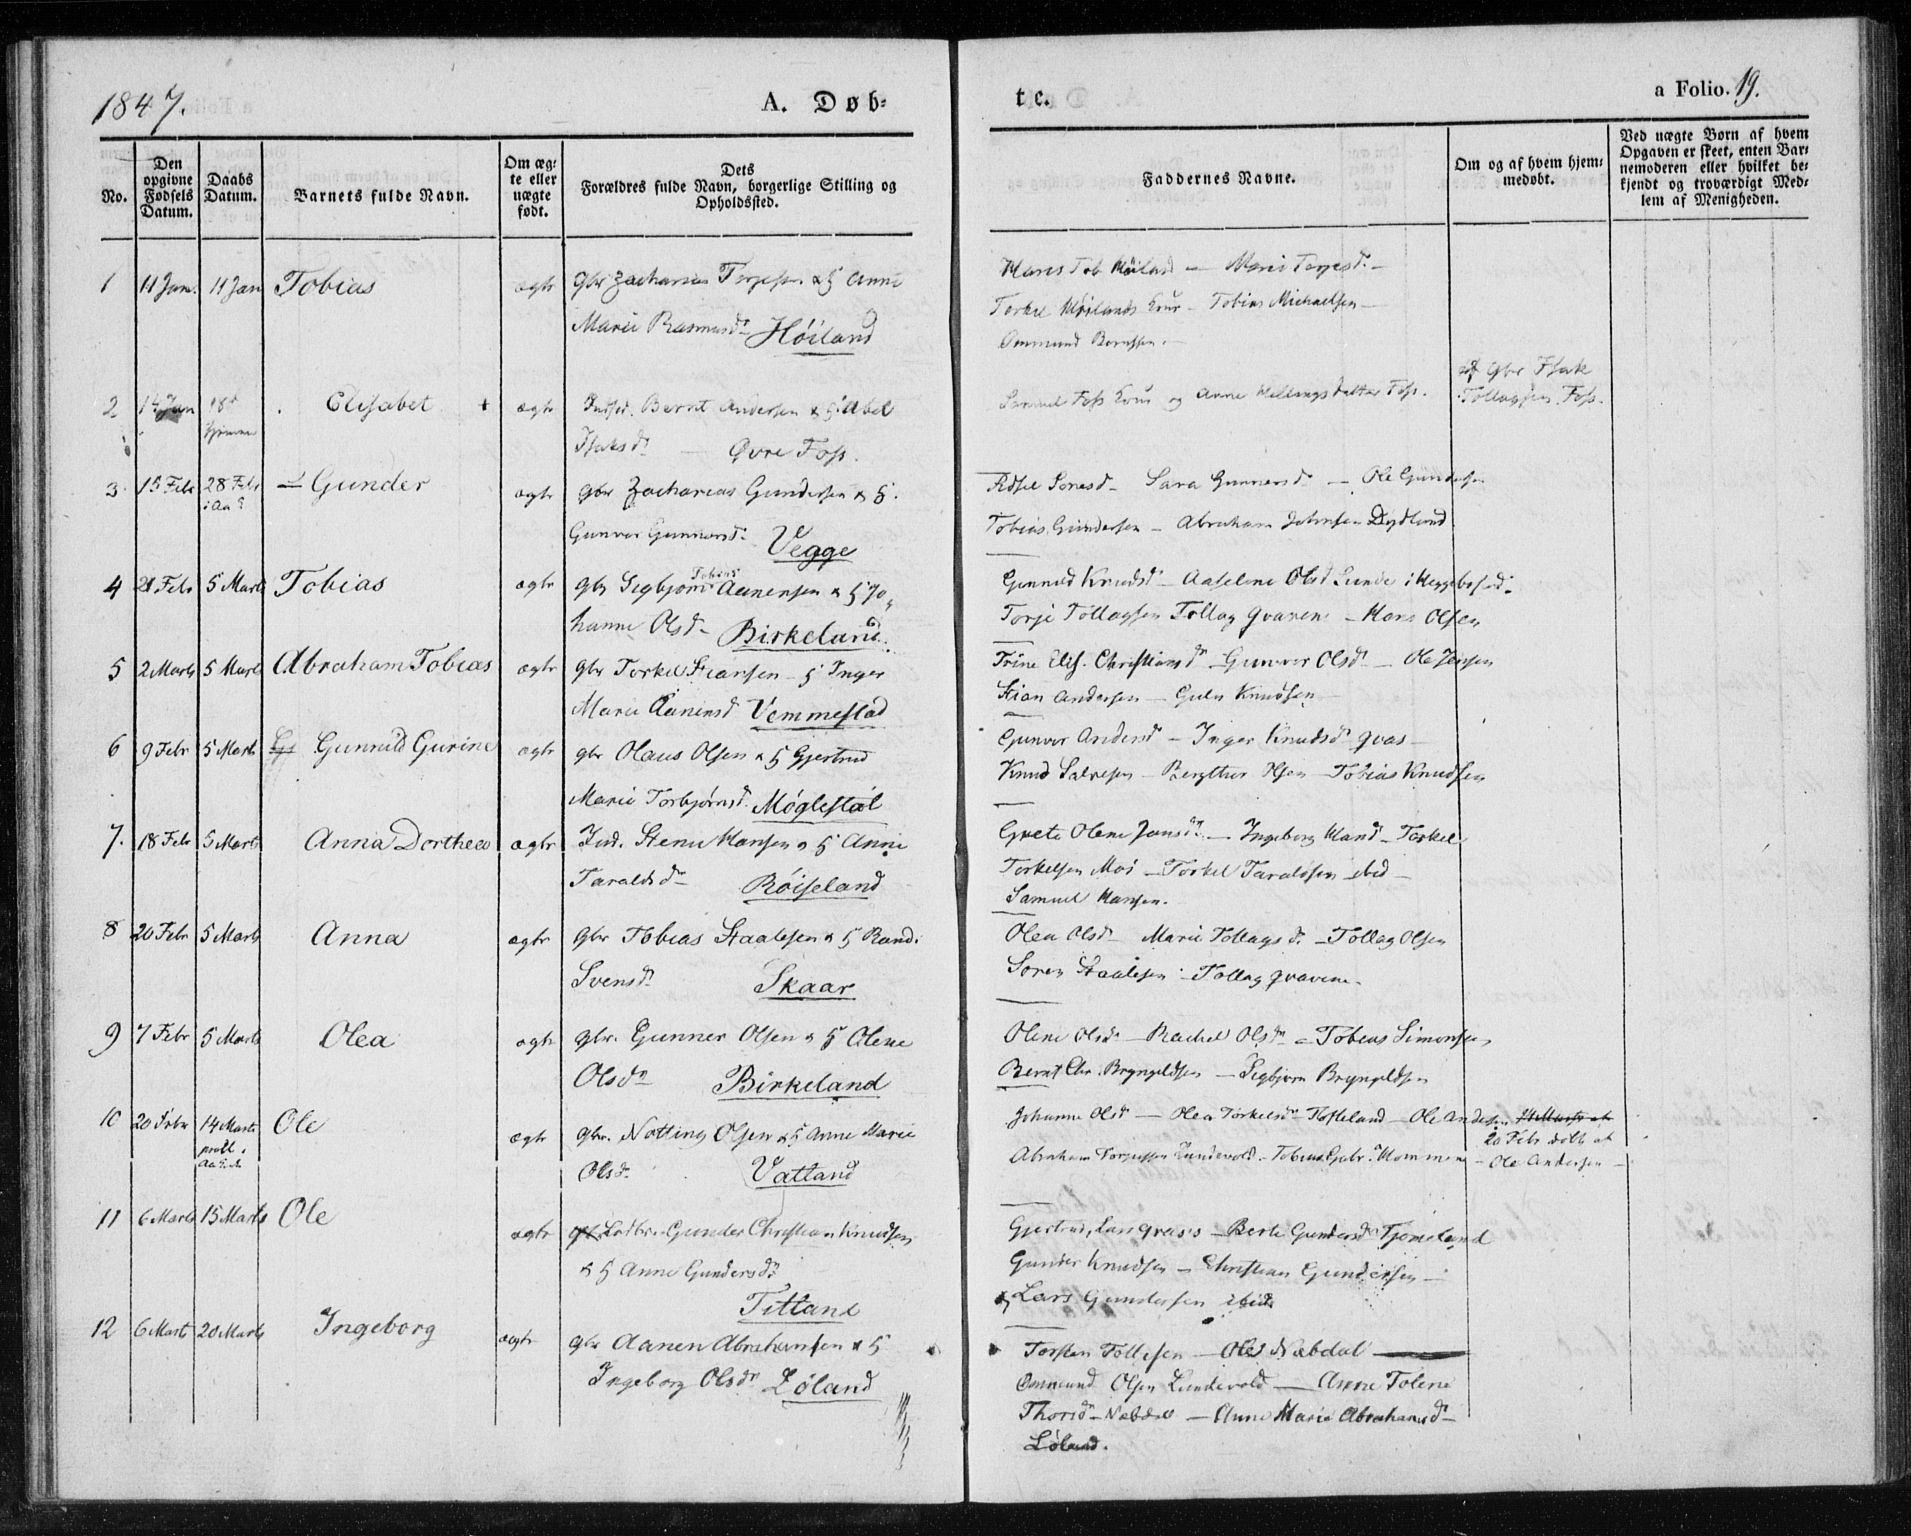 1847.
A. Døb-
te.
a Folio. 19.
No.
Den opgivne Fødsels Datum.
Daabs Datum.
Barnets fulde Navn.
Om ægte eller uægte født.
Dets Forældres fulde Navn, borgerlige Stilling og Opholdssted.
Faddernes Navne.
Om og af hvem hjemmedøbt.
Ved uægte Børn af hvem Opgaven er skeet, enten Barnemoderen eller hvilket bekjendt og troværdigt Medlem af Menigheden.
1 11 Jan. 11 Jan Tobias ægte gbr Zacharias Terjesen & H Anne
Marie Rasmusdr Høiland
Marie Terjesd.
Tobias Michaelsen
2 Jan 18d Elisabet ægte Indsid. Bernt Andersen & H Abel
Isaksdr Øvre Foss.
Samuel Foss og Anne datter Foss.
af Gbr Isak
Tollagsen Foss.
3 15 Febr 28 Febr Gunder ægte gbr Zacharias Gundersen & H.
Gunvor Gunnarsd. Vegge
Sara Gunnarsd. Ole Gundersen
Tobias Gundersen Abraham Johnsen Dydland
4 21 Febr 5 Marts Tobias ægte gbr Sigbjørn Tobias Aanensen & H Jo-
hanne Olsd. Birkeland.
Gunnild Knudsd. Aaselene Olsd Lunde
Torje Tollagsen Tollag Qvavene Hans Olsen
5 2 Marts 5 Marts Abraham Tobias ægte gbr Torkel Stiansen H Inger
Marie Aanensd Vemmestad
Trine Elis. Christiansd. Gunvor Olsd. Ole Jensen
Stian Andersen Knudsen
6 9 Febr 5 Marts Gunnild Gurine ægte gbr Olaus Olsen & H Gjertrud
Marie Torbjørnsd. Møglestøl
Gunvor Andersd Inger Knudsd. Qvas
Knud Salvesen Bergthor Olsen Tobias Knudsen
7. 18 Febr 5 Marts Anna Dorthea ægte Ind. Steni Hansen & H Anne
Taraldsdr Røiseland
Grete Olene Jensdr. Ingeborg Hansd. Torkel
Torkelsen Moi Torkel Taraldsen ibid
Samuel Hansen.
8 20 Febr 5 Marts Anna ægte gbr Tobias Staalesen & H Randi
Svensdr Skaar
Olea Olsd. Marie Tollagsd. Tollag Olsen
Søren Staalesen Tollag Qvavene.
9 7 Febr 5 Marts Olea ægte gbr. Gunner Olsen & H Olene
Olsdr Birkeland
Olene Olsd. Rachel Olsdr Tobias Simonsen
Bernt Chr. Bryngeldsen Sigbjørn Bryngeldsen
10 20 Febr 14 Marts Ole ægte gbr. Notting Olsen & H Anne Marie
Olsdr. Vatland
Johanne Olsd. Olea Torkelsd. Tofteland Ole Andersen 14 Marts af
20 Febr døbt af
Abraham Torjussen Lundevold. Tobias Gabr. Kommen Ole Andersen
11 6 Marts 15 Marts Ole ægte Gunder Christian Knudsen
& H Anne Gundersd.
Titland
Gjertrud Lars Qvas's Berte Gundersd. Tjomeland
Gunder Knudsen Christian Gundersen
& Lars Gundersen ibid
12 6 Marts 20 Marts Ingeborg ægte gbr Aanen Abrahamsen & H
Ingeborg Olsdr Løland
Torsten Tollefsen Næbdal
Ommund Olsen Lundevold Anne Tolene
Thorsd. Nebdal Anne Marie Abrahamsd.
Løland.